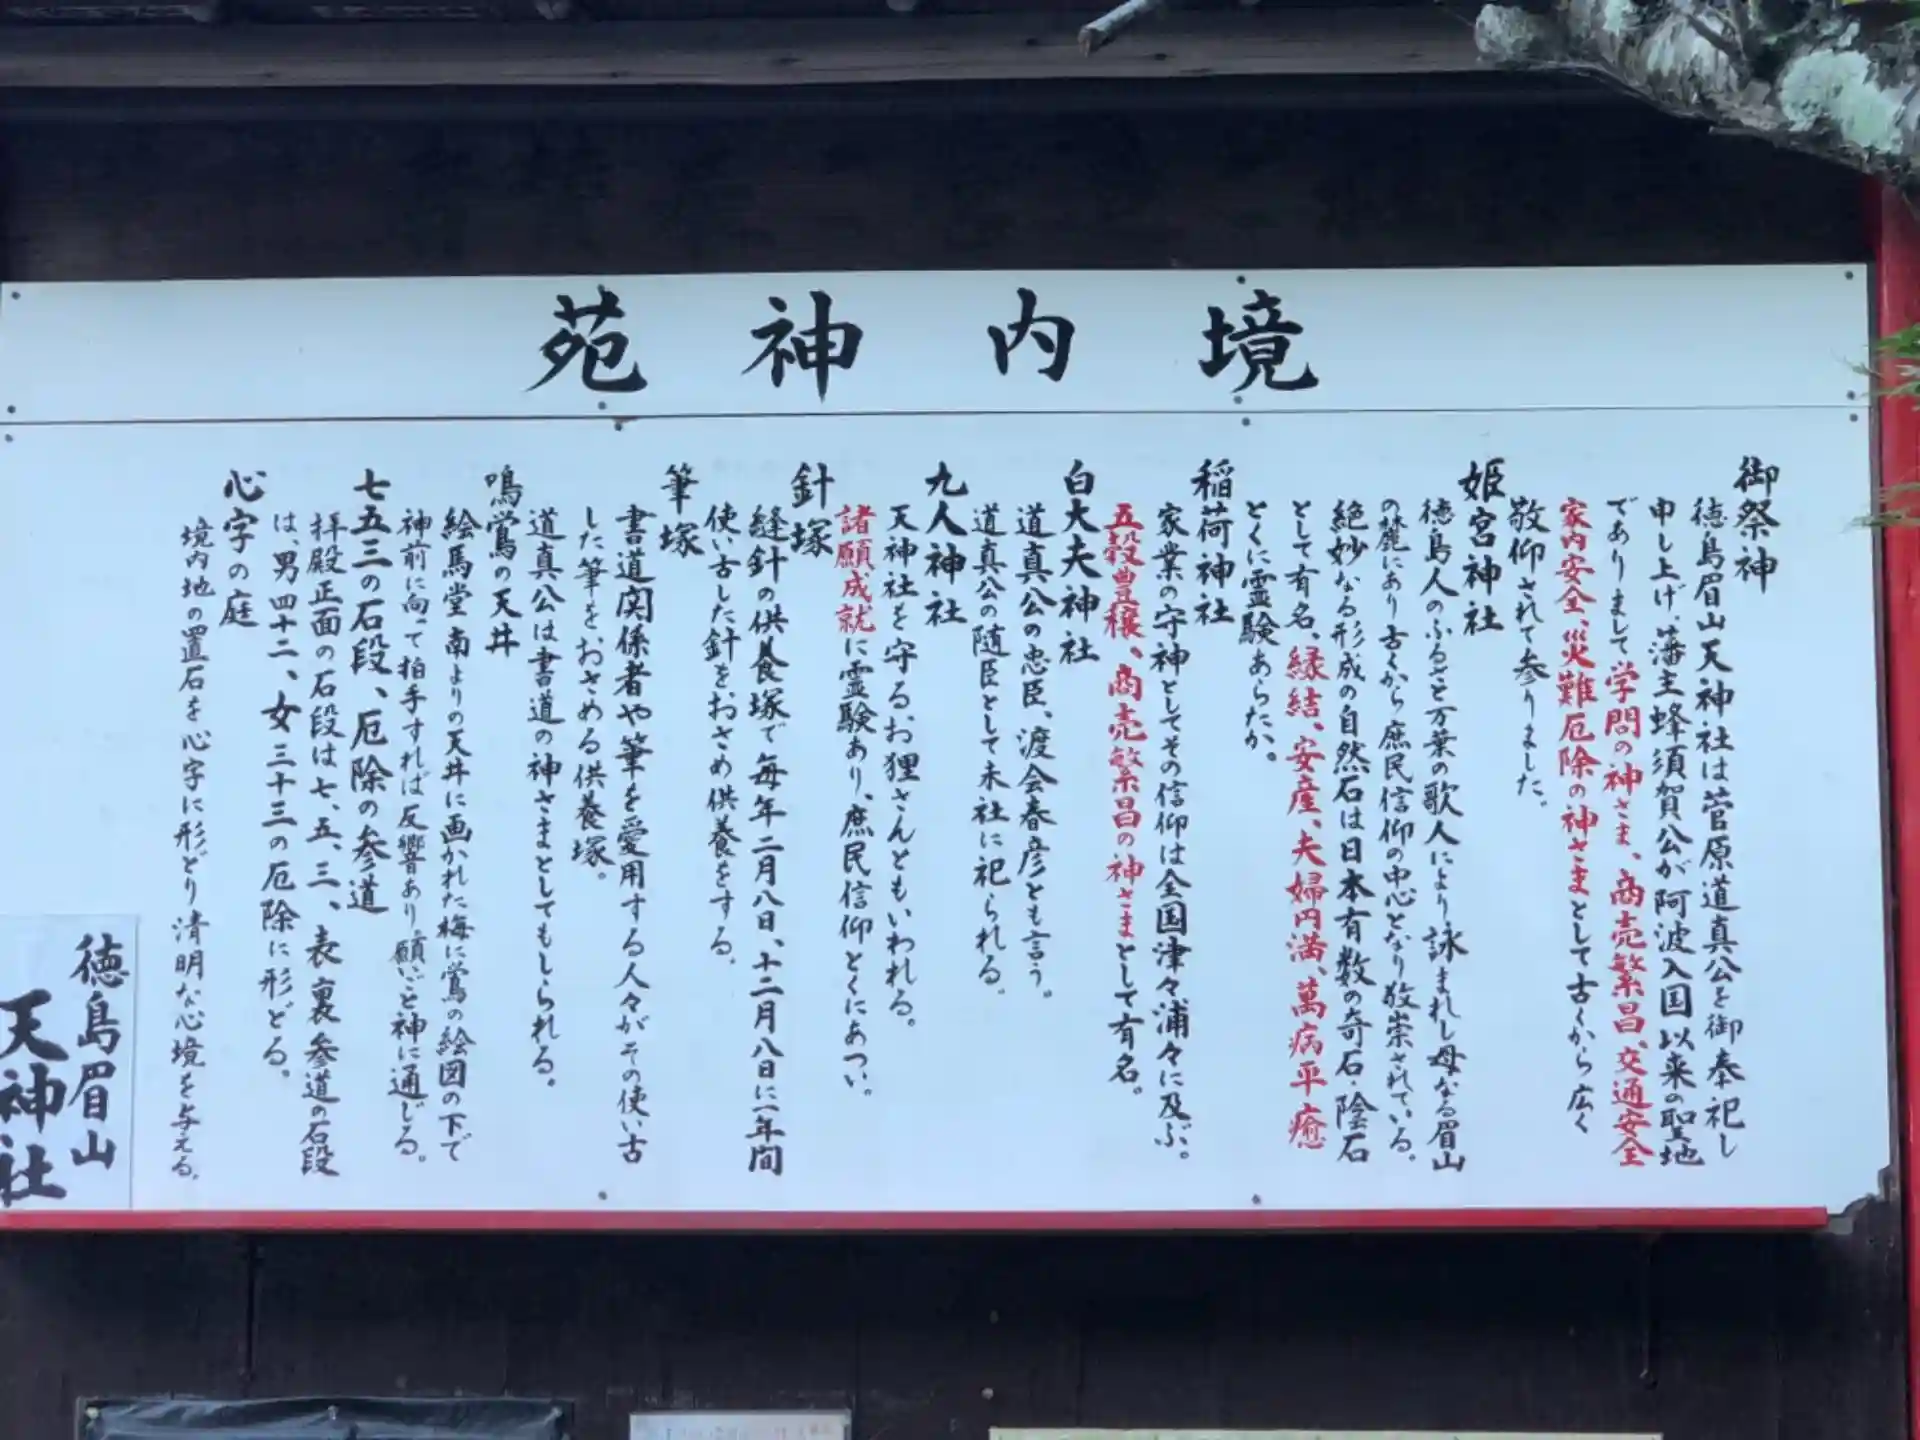 境内神苑
御祭神
徳島眉山天神社は菅原道真公を御奉祀し
申し上げ、藩主蜂須賀公が阿波入国以来の聖地
でありまして学問の神さま、商売繁昌、交通安全
家内安全、災難厄除の神さまとして古くから広く
敬仰されて参りました。
姫宮神社
徳島人のふるさと万葉の歌人により詠まれし母なる眉山
の麓にあり古くから庶民信仰の中心となり敬崇されている。
絶妙なる形成の自然石は日本有数の奇石・陰石
として有名、縁結、安産、夫婦円満、萬病平癒
とくに霊験あらたか。
稲荷神社
家業の守神としてその信仰は全国津々浦々に及ぶ。
五穀豊穣、商売繁昌の神さまとして有名。
白大夫神社
道真公の忠臣、渡会春彦とも言う。
道真公の随臣として末社に祀られる。
九人神社
天神社を守る、お狸さんともいわれる。
諸願成就に霊験あり、庶民信仰とくにあつい。
針塚
縫針の供養塚で毎年二月八日、十二月八日に一年間
使い古した針をおさめ供養をする。
筆塚
書道関係者や筆を愛用する人々がその使い古
した筆をおさめる供養塚。
道真公は書道の神さまとしてもしられる。
鳴鴬の天井
絵馬堂南よりの天井に画かれた梅に鴬の絵図の下で
神前に向って拍手すれば反響あり、願いごと神に通じる。
七五三の石段、厄除の参道
拝殿正面の石段は七、五、三、表裏参道の石段
は、男四十二、女三十三の厄除に形どる。
心字の庭
境内地の置石を心字に形どり清明な心境を与える。
徳島眉山
天神社